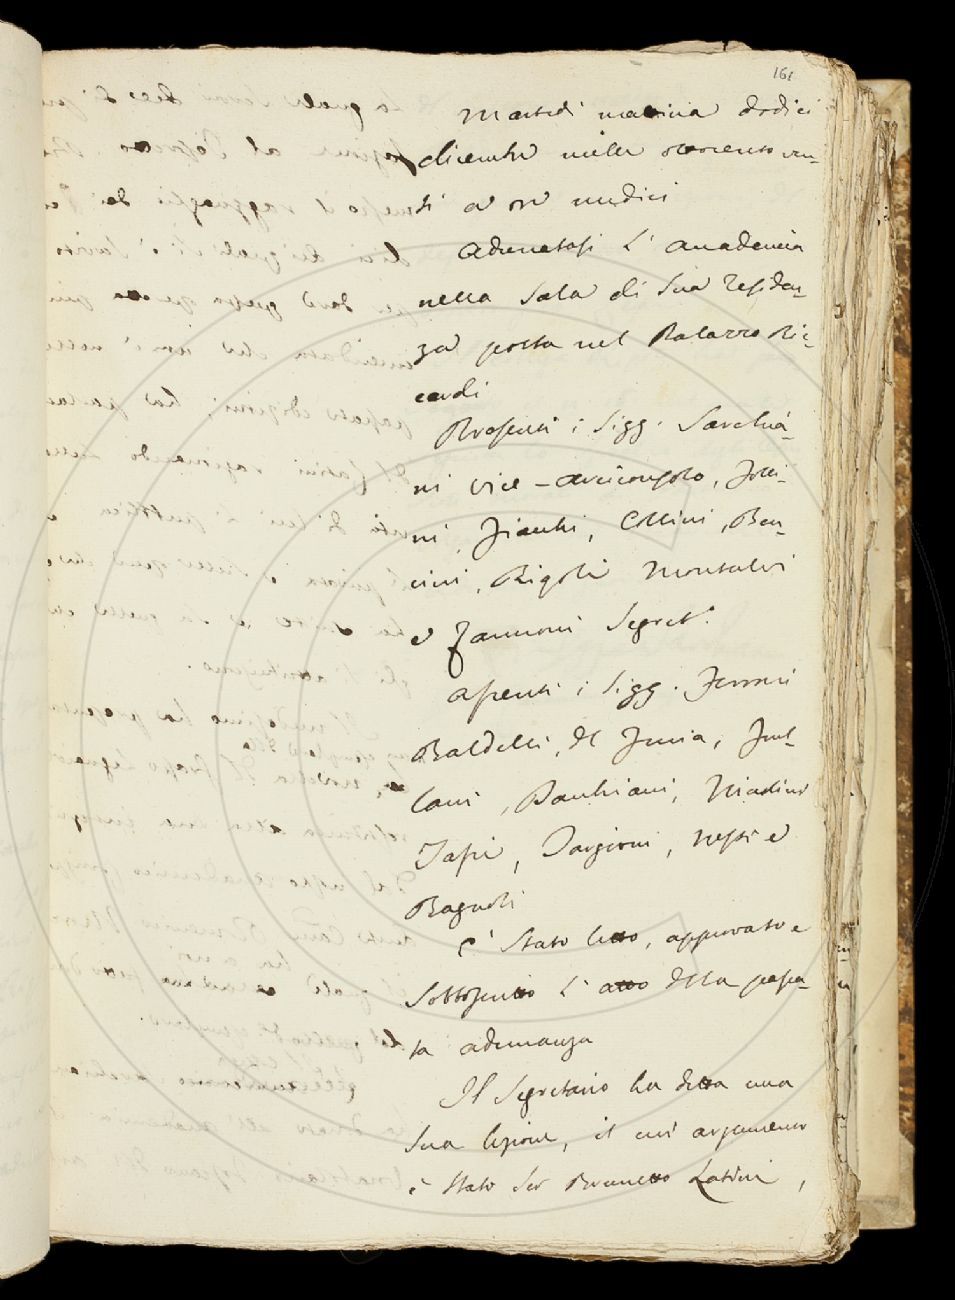 161
Martedì mattina dodici
dicembre mille ottocento ven-
ti a ore undici
Adunatasi l'Accademia
nella Sala di Sua Residen-
za posta nel Palazzo Ric-
cardi
Presenti i Sigg. Sarchia-
ni vice-arciconsolo, Folli-
ni, Fiacchi, Collini, Ben-
cini, Rigoli Montalvi
e Zannoni Segret.º
Assenti i Sigg. Ferroni
Baldelli, Del Furia, Ful-
lani, Pauliani, Niccolini
Tassi, Targioni, Nesti e
Bagnoli
È stato letto, approvato e
Sottoscritto l'atto della passa-
ta adunanza
Il Segretario ha detta una
Sua lezione, il cui argomento
è stato Ser Brunetto Latini,